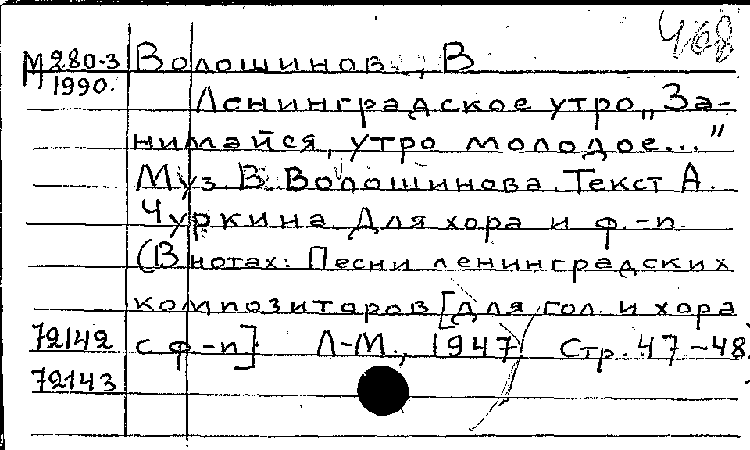 468
М 280-3
1990.
Волошинов, В
Ленинградское утро „За-
нимайся, утро молодое..."
Муз В. Волошинова. Текст А.
Чуркина Для хора и ф.-п.
(В нотах: Песни ленинградских
композиторов [для гол. и хора
72142 с ф-п]. Л-М., 1947) Стр. 47-48.
72143